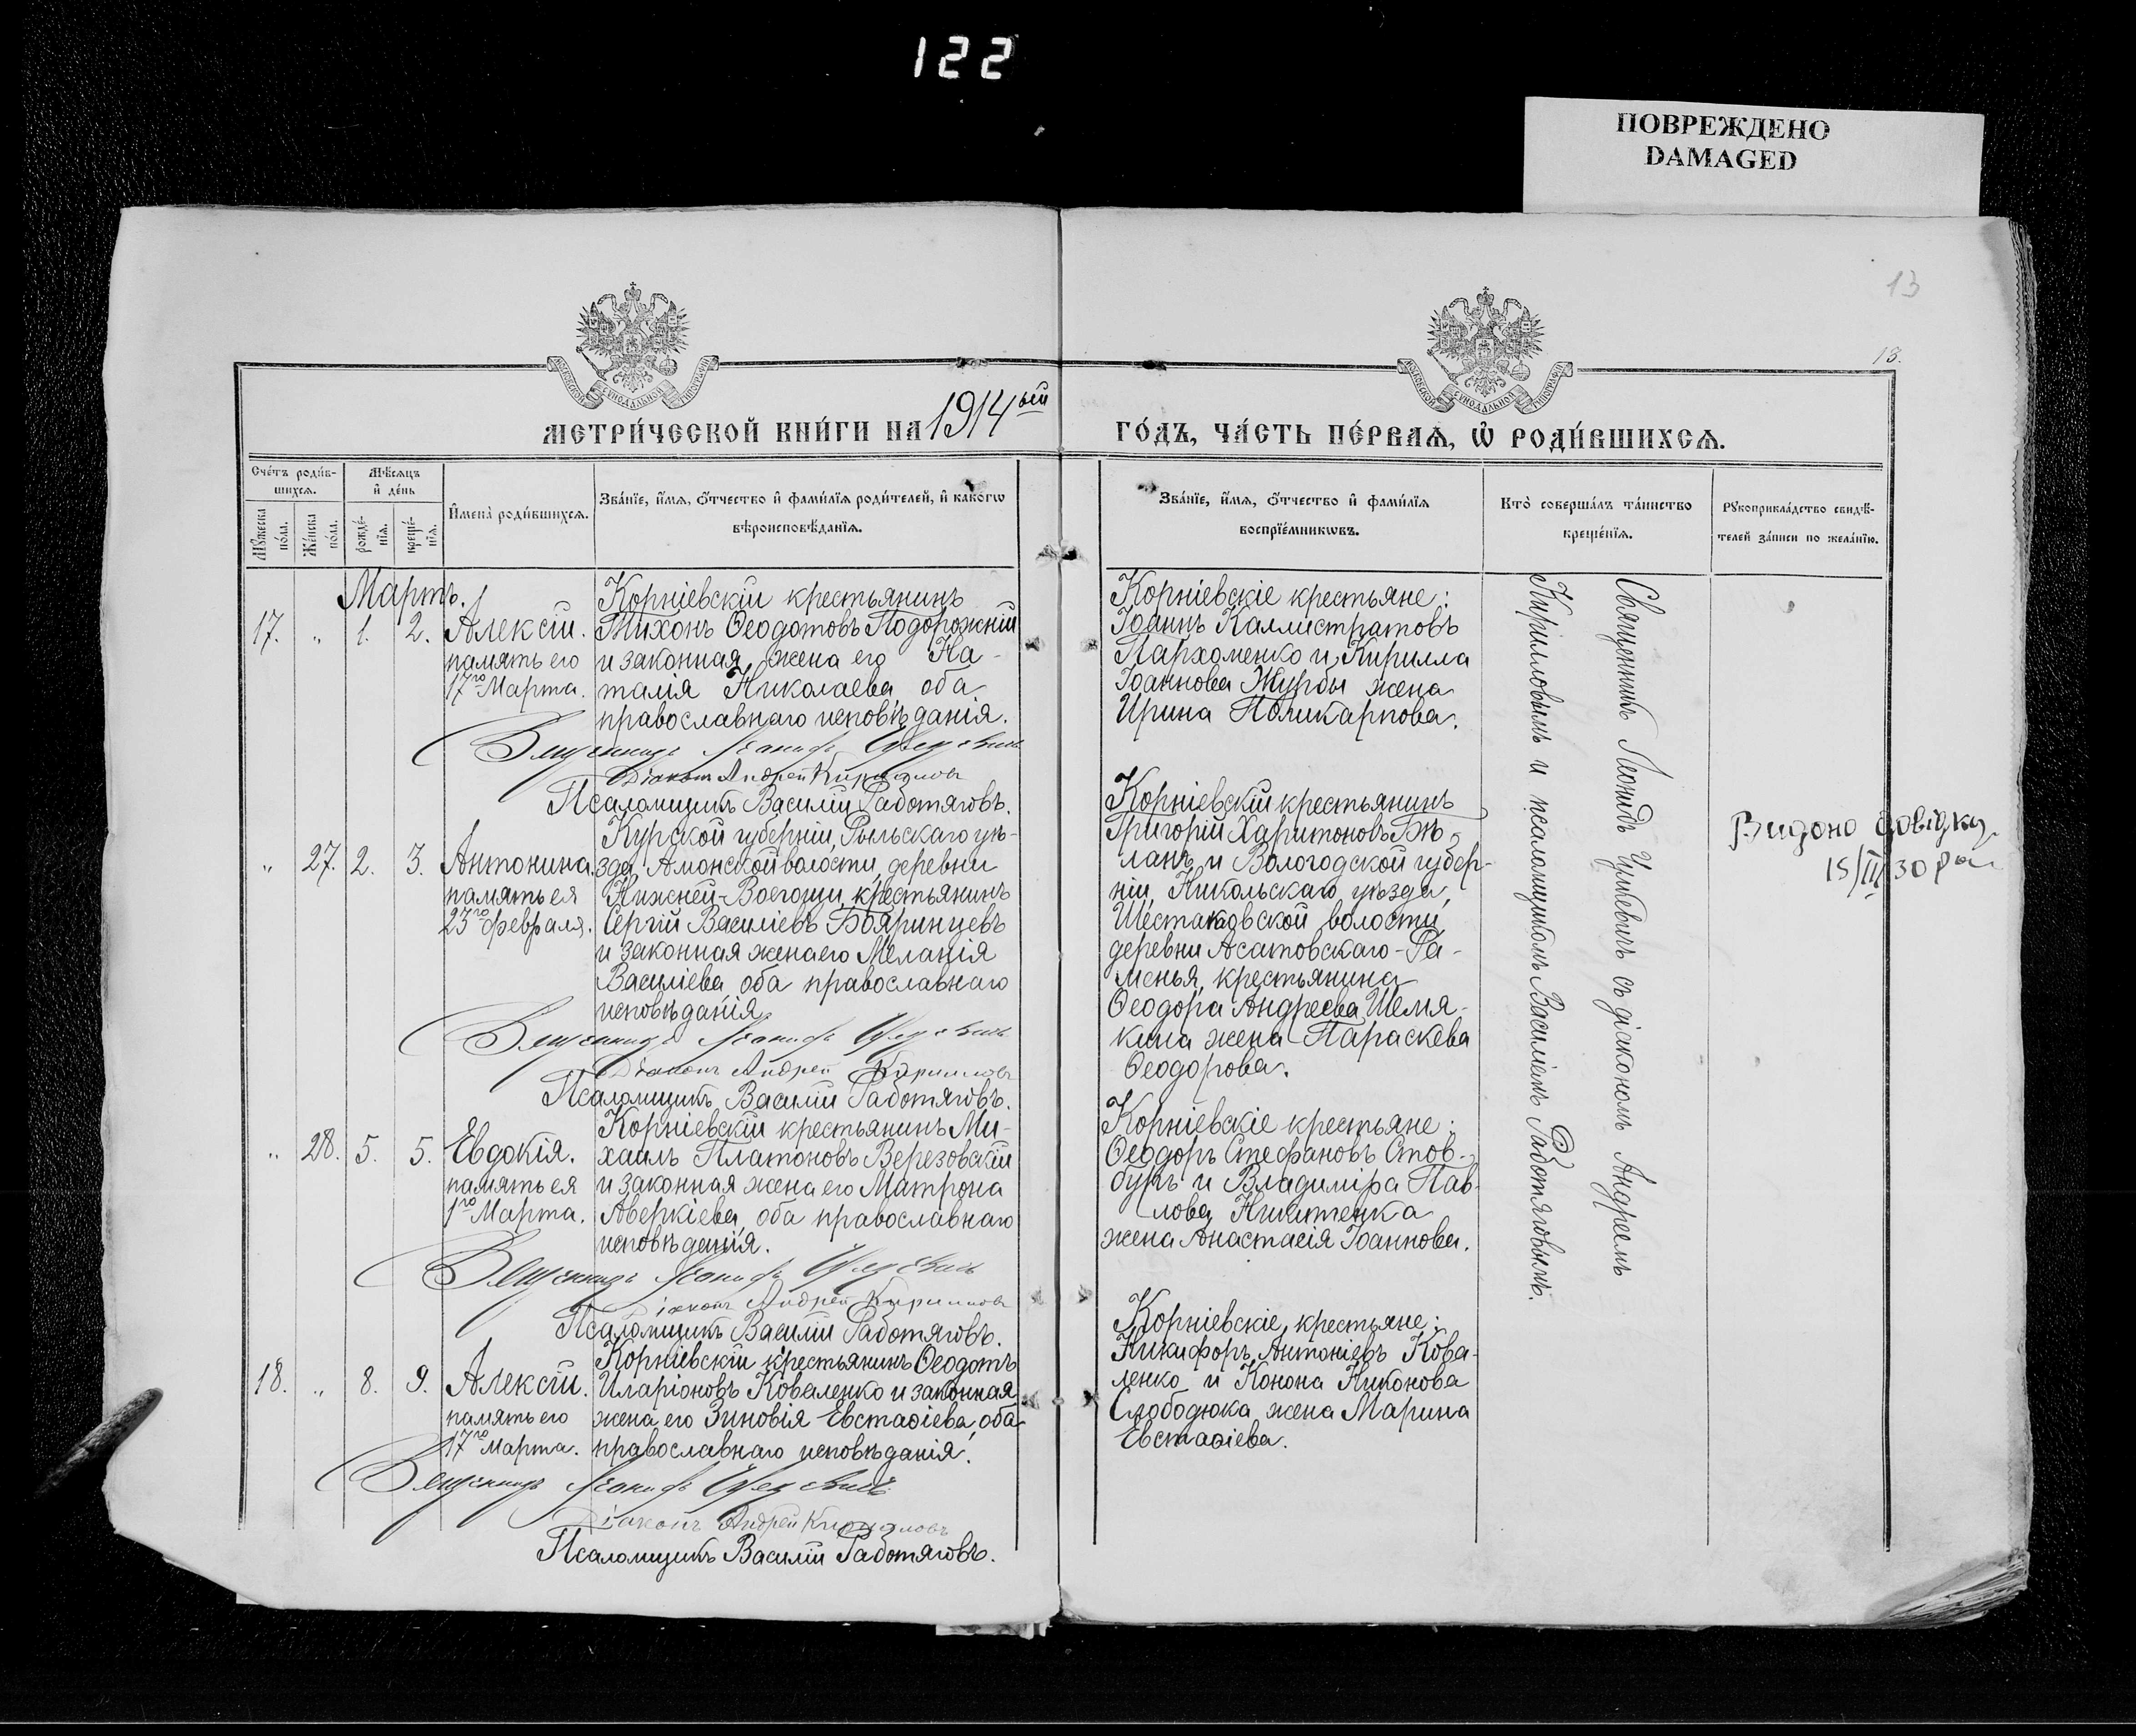 122
ПОВРЕЖДЕНО
DAMAGED
13
13.
МЕТРИ́ЧЕСКОЙ КНИ́ГИ НА 1914ый
ГО́ДЪ, ЧА́СТЬ ПЕ́РВАѦ, Ѡ҆ РОДИ́ВШИХСѦ.
Сче́тъ роди́в-
шихсѧ.
Мѣ́сѧцъ
и҆ де́нь
Мꙋ́жеска
по́ла.
Же́нска
по́ла.
рожде́-
нїѧ.
креще́-
нїѧ.
И҆мена̀ роди́вшихсѧ.
Зва́нїе, и҆́мѧ, ѻ҆́тчество и҆ фами́лїѧ роди́телей, и҆ како́гѡ
вѣроисповѣ́данїѧ.
Зва́нїе, и҆́мѧ, ѻ҆́тчество и҆ фами́лїѧ
воспрїе́мникѡвъ.
Кто̀ соверша́лъ та́инство
креще́нїѧ.
Рꙋкоприкла́дство свидѣ́-
телей за́писи по жела́нїю.
Мартъ.
17. „ 1. 2. Алексій.
память его
17го Марта.
Корніевскій крестьянинъ
Тихонъ Ѳеодотовъ Подорожній
и законная жена его На-
талія Николаева, оба
православнаго исповѣданія.
Священникъ Леонидъ
Діаконъ Андрей Кирилловъ
Псаломщикъ Василій Работяговъ.
Корніевскіе крестьяне:
Іоаннъ Каллистратовъ
Пархоменко и Кирилла
Іоаннова Журбы жена
Ирина Поликарпова.
„ 27. 2. 3. Антонина.
память ея
23го февраля.
Курской губерніи, Рыльскаго уѣ-
зда, Амонской волости, деревни
Нижней-Воегощи, крестьянинъ
Сергій Василіевъ Бояринцевъ
и законная жена его Меланія
Василіева, оба православнаго
исповѣданія.
Священникъ Леонидъ
Діаконъ Андрей Кирилловъ
Псаломщикъ Василій Работяговъ.
Корніевскій крестьянинъ
Григорій Харитоновъ Бѣ-
ланъ и Вологодской губер-
ніи, Никольскаго уѣзда,
Шестаковской волости,
деревни Асатовскаго-Ра-
менья, крестьянина
Ѳеодора Андреева Шемя-
кина жена Параскева
Ѳеодорова.
„ 28. 5. 5. Евдокія.
память ея
1го Марта.
Корніевскій крестьянинъ Ми-
хаилъ Платоновъ Березовскій
и законная жена его Матрона
Аверкіева, оба православнаго
исповѣданія.
Священникъ Леонидъ
Діаконъ Андрей Кирилловъ
Псаломщикъ Василій Работяговъ.
Корніевскіе крестьяне:
Ѳеодоръ Стефановъ Стов-
буръ и Владиміра Пав-
лова Никитенка
жена Анастасія Іоаннова.
18. „ 8. 9. Алексій.
память его
17го Марта.
Корніевскій крестьянинъ Ѳеодотъ
Иларіоновъ Коваленко и законная
жена его Зиновія Евстаѳіева, оба
православнаго исповѣданія.
Священникъ Леонидъ
Діаконъ Андрей Кирилловъ
Псаломщикъ Василій Работяговъ.
Корніевскіе крестьяне:
Никифоръ Антоніевъ Кова-
ленко и Конона Никонова
Слободюка жена Марина
Евстаѳіева.
Священникъ Леонидъ съ діакономъ Андреемъ
Кирилловымъ и псаломщикомъ Василіемъ Работяговымъ.
Видано довідку.
15/II 30 р